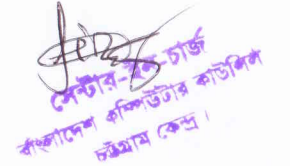 সেন্টার-ইন-চার্জ
বাংলাদেশ কম্পিউটার কাউন্সিল
চট্টগ্রাম কেন্দ্র।